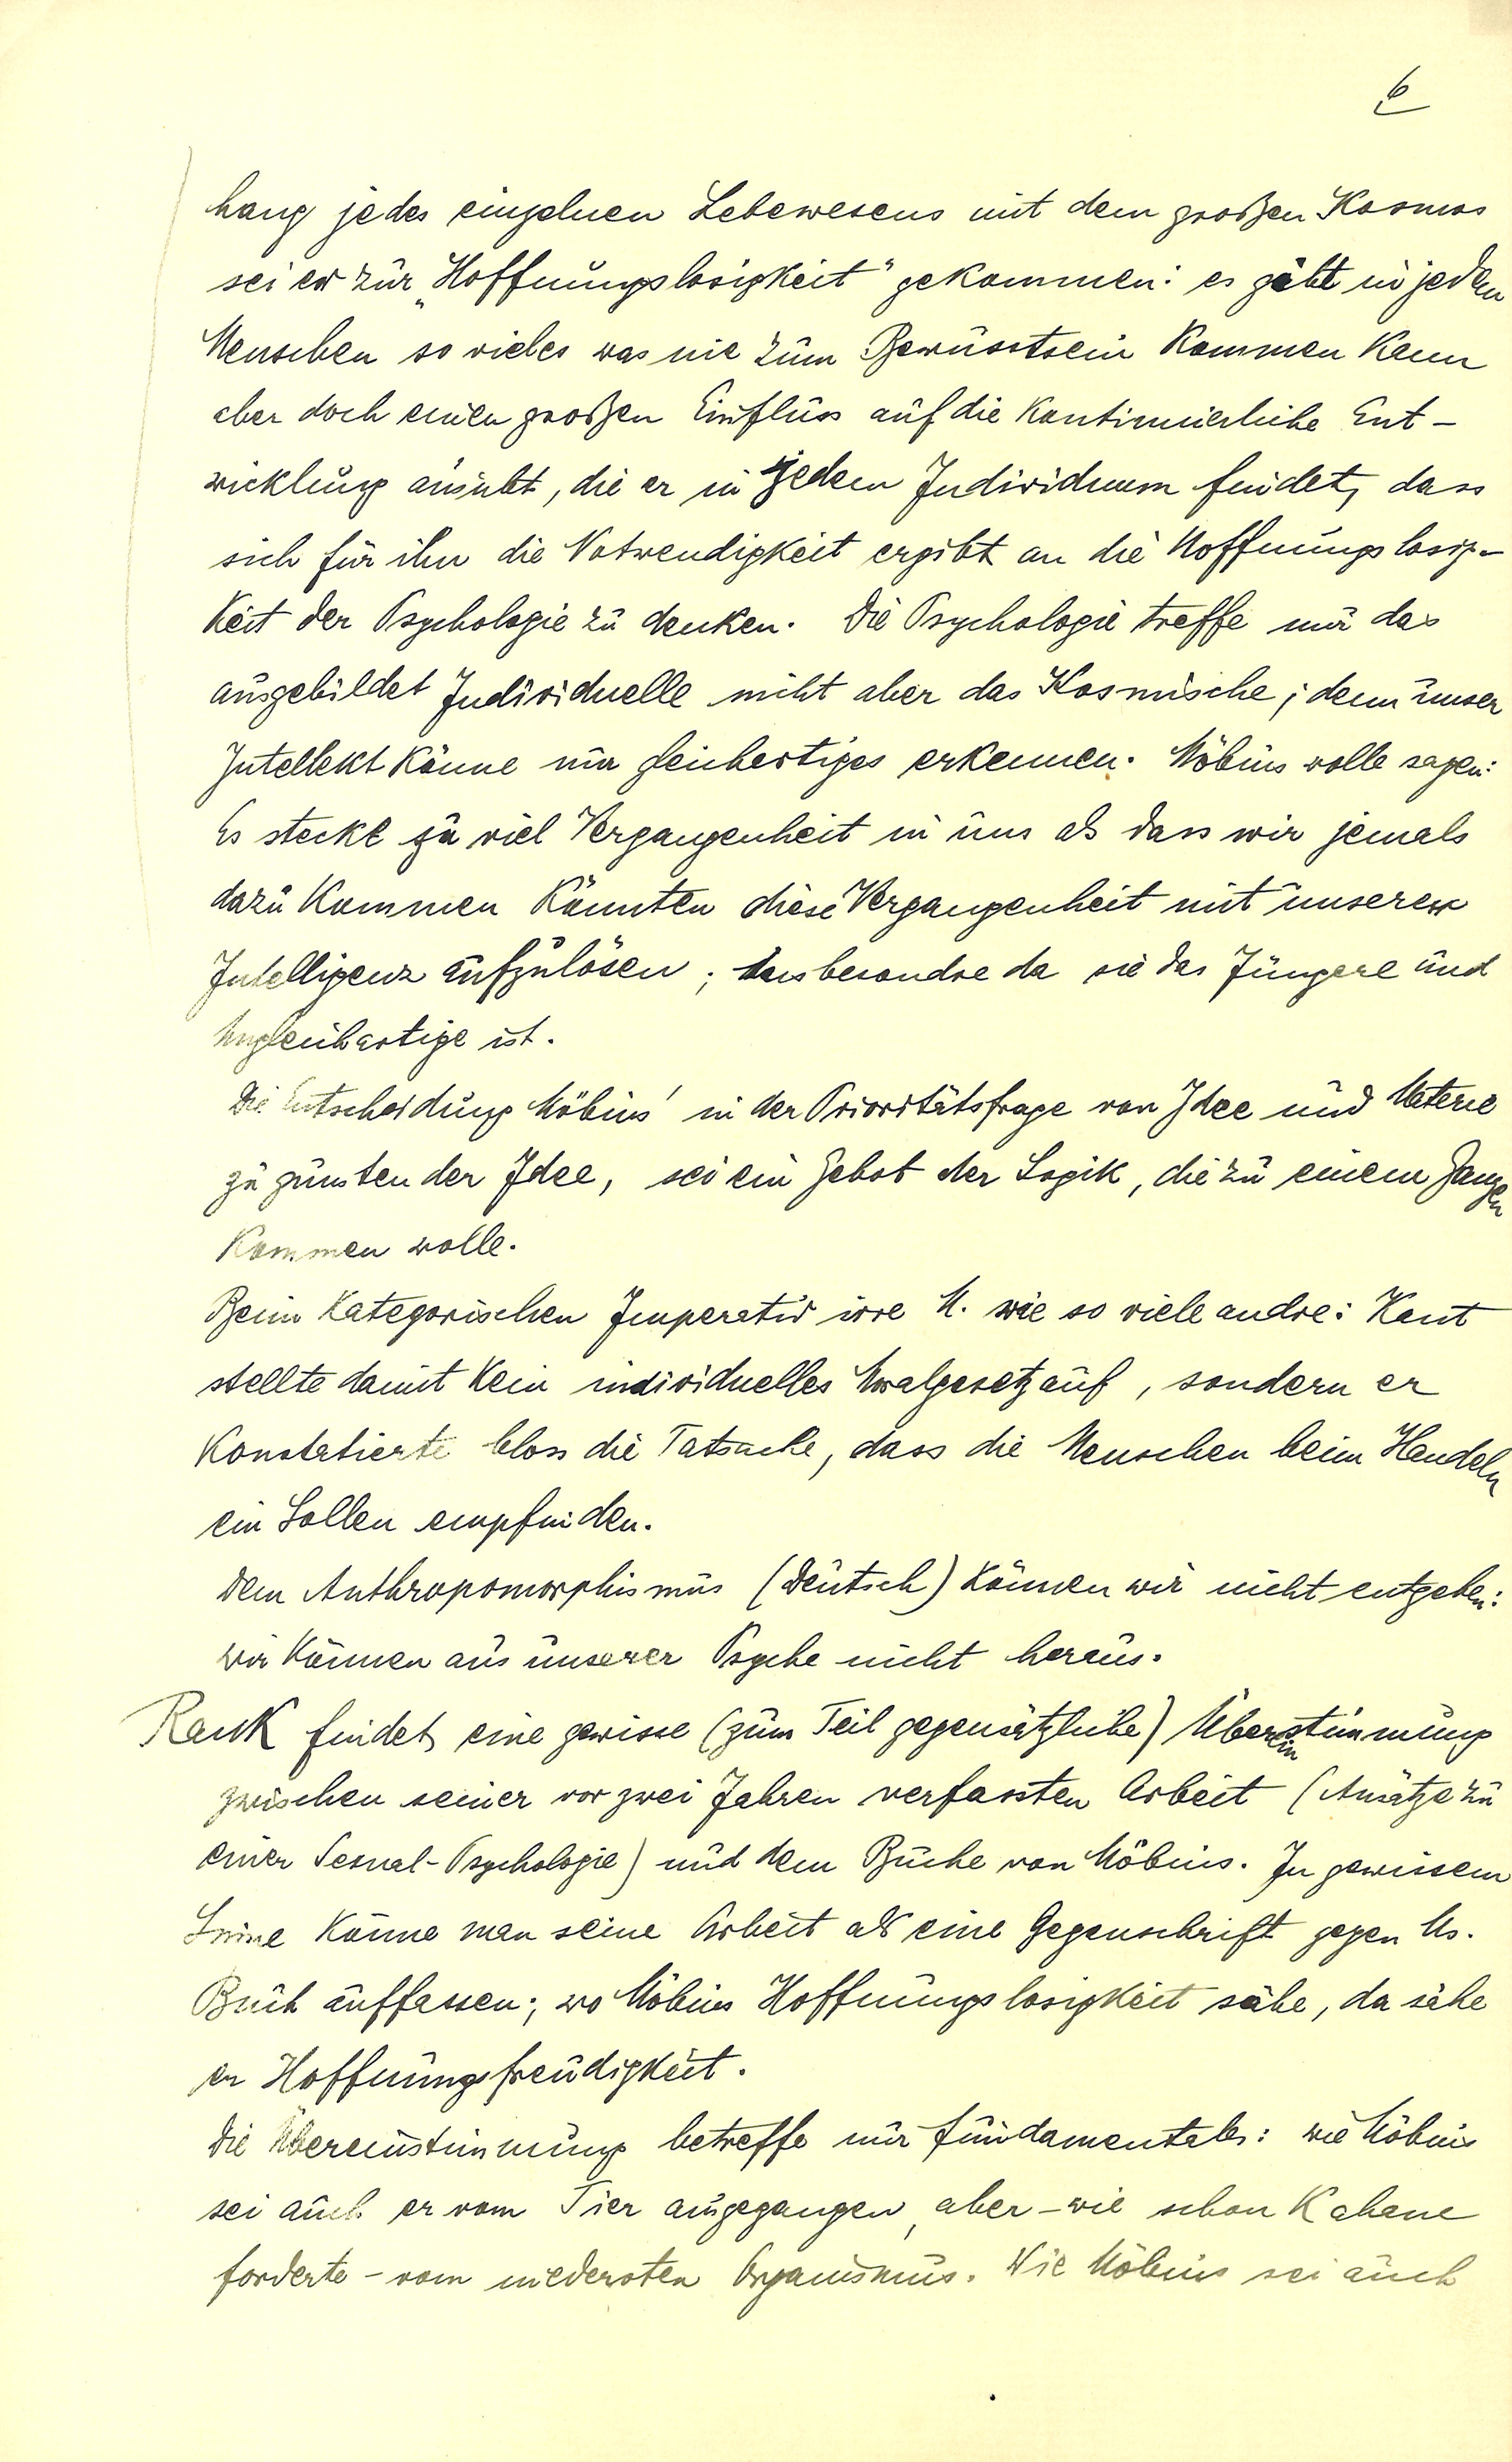 6
hang jedes einzelnen Lebewesens mit dem großen Kosmos
sei er zur „Hoffnungslosigkeit" gekommen: es gäbe in jedem
Menschen so vieles was nie zum Bewusstsein kommen kann
aber doch einen großen Einfluss auf die kontinuierliche Ent-
wicklung ausübt, die er in jedem Individuum findet, dass
sich für ihn die Notwendigkeit ergibt an die Hoffnungslosig-
keit der Psychologie zu denken. Die Psychologie treffe nur das
ausgebildet Individuelle nicht aber das Kosmische; denn unser
Intellekt könne nur gleichartiges erkennen. Möbius wolle sagen:
Es steckt zu viel Vergangenheit in uns als dass wir jemals
dazu kommen könnten diese Vergangenheit mit unserer
Intelligenz aufzulösen; insbesondre da sie das Jüngere und
Ungleichartige ist.
Die Entscheidung Möbius' in der Prioritätsfrage von Idee und Materie
zu gunsten der Idee, sei ein Gebot der Logik, die zu einem Ganzen
kommen wolle.
Beim kategorischen Imperativ irre M. wie so viele andre: Kant
stellte damit kein individuelles Moralgesetz auf, sondern er
konstatierte bloss die Tatsache, dass die Menschen beim Handeln
ein Sollen empfinden.
Dem Anthropomorphismus (Deutsch) können wir nicht entgehen:
wir können aus unserer Psyche nicht heraus.
Rank findet eine gewisse (zum Teil gegensätzliche) Übereinstimmung
zwischen seiner vor zwei Jahren verfassten Arbeit (Ansätze zu
einer Sexual-Psychologie) und dem Buche von Möbius. In gewissem
Sinne könne man seine Arbeit als eine Gegenschrift gegen Ms.
Buch auffassen; wo Möbius Hoffnungslosigkeit sähe, da sähe
er Hoffnungsfreudigkeit.
Die Übereinstimmung betreffe nur fundamentales: wie Möbius
sei auch er vom Tier ausgegangen, aber - wie schon Kahane
forderte - vom niedersten Organismus. Wie Möbius sei auch